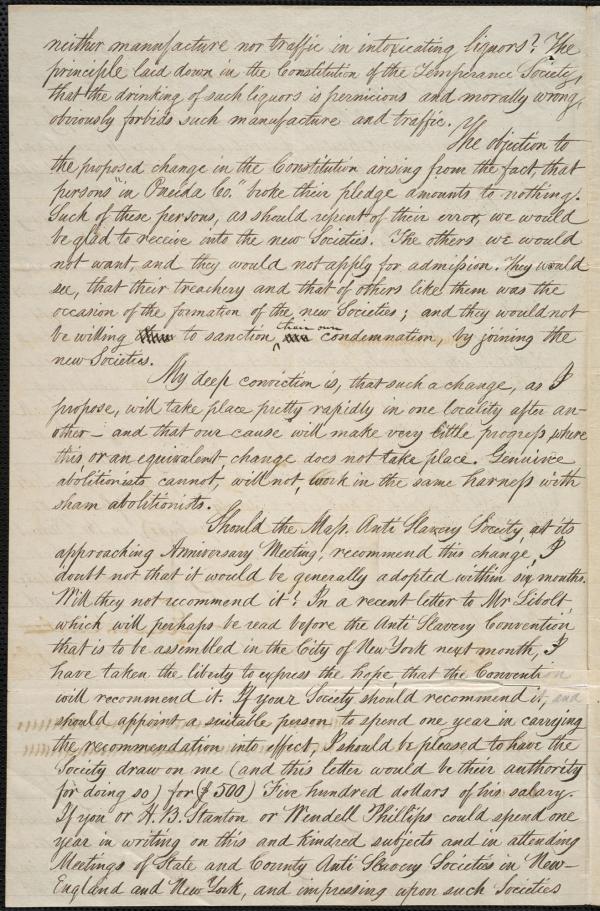 neither manufacture nor traffic in intoxicating liquors? The
principle laid down in the Constitution of the Temperance Society,
that the drinking of such liquors is pernicious and morally wrong,
obviously forbids such manufacture and traffic.
The objection to
the proposed change in the Constitution arising from the fact, that
persons "in Oneida Co." broke their pledge amounts to nothing.
Such of these persons, as should repent of their error, we would
be glad to receive into the new Societies. The others we would
not want, and they would not apply for admission. They would
see, that their treachery and that of others like them was the
occasion of the formation of the new Societies; and they would not
be willing to sanction their own condemnation, by joining the
new Societies.
My deep conviction is, that such a change, as I
propose, will take place pretty rapidly in one locality after an-
other – and that our cause will make very little progress, where
this, or an equivalent, change does not take place. Genuine
abolitionists cannot, will not, work in the same harness with
sham abolitionists.
Should the Mass. Anti Slavery Society, at its
approaching Anniversary Meeting, recommend this change, I
doubt not that it would be generally adopted within six months.
Will they not recommend it? In a recent letter to Mr
which will perhaps be read before the Anti Slavery Convention
that is to be assembled in the City of New York next month, I
have taken the liberty to express the hope that the Convention
will recommend it. If your Society should recommend it, and
should appoint a suitable person to spend one year in carrying
the recommendation into effect, I should be pleased to have the
Society draw on me (and this letter would be their authority
for doing so) for ($500) Five hundred dollars of his salary.
If you or H. B. Stanton or Wendell Phillips could spend one
year in writing on this and kindred subjects and in attending
Meetings of State and County Anti Slavery Societies in New-
England and New York, and impressing upon such Societies